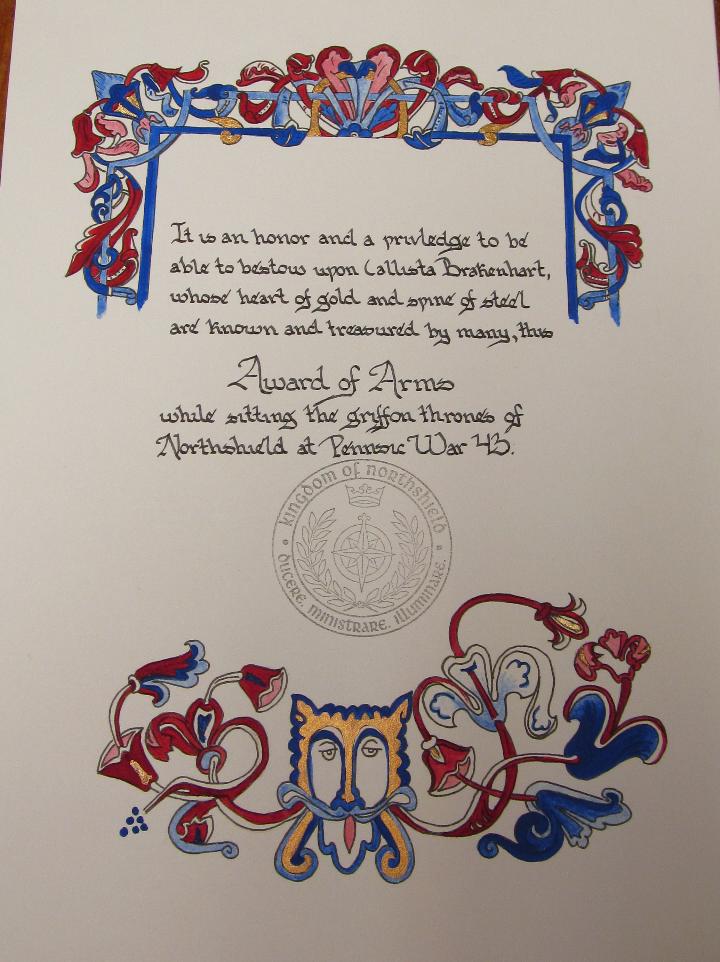 It is an honor and a priviledge to be
able to bestow upon Callista Brakenhart,
whose heart of gold and spine of steel
are known and treasured by many, this
Award of Arms
while sitting the griffon thrones of
Northshield at Pennsic War 43.
kingdom of northshield
ducere. ministrare. illuminare.